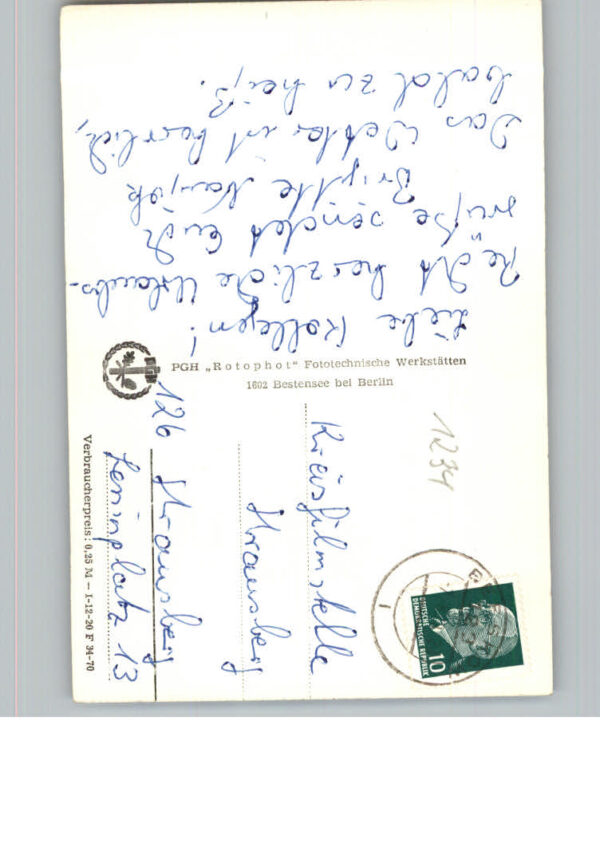 Liebe Kollegen!
Recht herzliche Urlaubs-
grüße sendet Euch
Brigitte
Das Wetter ist herrlich,
bald zu heiß.
PGH „Rotophot“ Fototechnische Werkstätten
1602 Bestensee bei Berlin
1234
DEUTSCHE
DEMOKRATISCHE REPUBLIK
10
Kreisfilmstelle
Strausberg
126 Strausberg
Leninplatz 13
Verbraucherpreis: 0,25 M – I-12-20 F 34-70